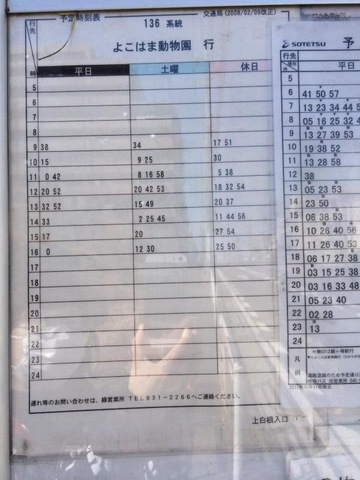 予定時刻表
136 系統
交通局(2008/02/09改正)
よこはま動物園 行
行先
時
平日 土曜 休日
5
6
7
8
9 38 34 17 51
10 15 9 25 30
11 0 42 8 16 58 5 38
12 20 52 20 42 53 18 32 54
13 32 52 15 49 20 37
14 33 2 25 45 11 44 56
15 17 20 27 54
16 0 12 30 25 50
17
18
19
20
21
22
23
24
遅れ等のお問い合わせは、緑営業所 TEL931-2266へご連絡ください。
上白根入口
SOTETSU 予
行先
平日
5
6 41 50 57
7 13 23 34 44
8 05 16 25 32
9 13 27 39 53
10 19 38 52
11 13 28 58
12 38
13 05 23 53
14 23 50
15 06 38 53
16 10 26 40 56
17 06 16 29 41
18 06 17 27 38
19 03 15 25 38
20 03 16 33 48
21 05 23 40
22 02 28
23 13
24
凡例